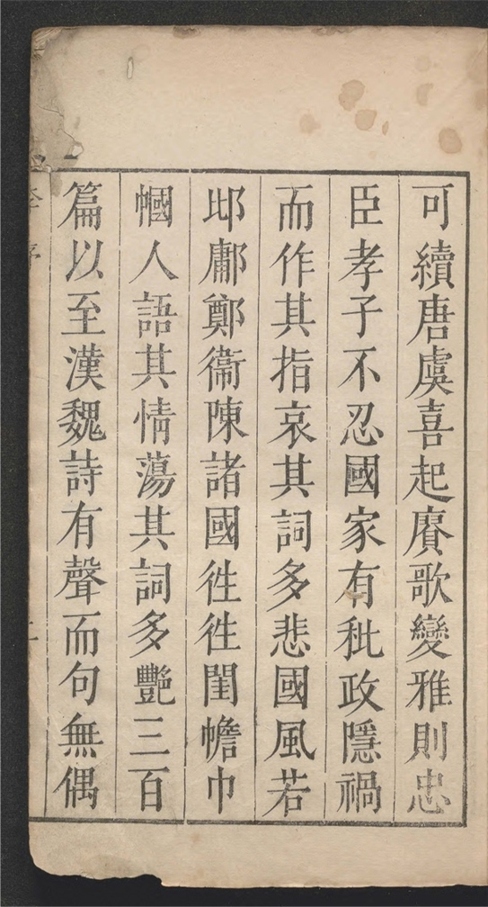 可續唐虞喜起賡歌變雅則忠
臣孝子不忍國家有秕政隱禍
而作其指哀其詞多悲國風若
邶鄘鄭衞陳諸國徃徃閨幨巾
幗人語其情蕩其詞多艷三百
篇以至漢魏詩有聲而句無偶
序
二